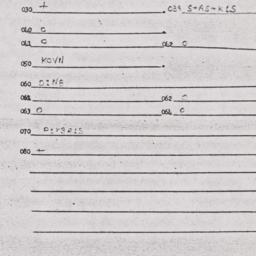 030 + 031 S+AS+KIS
040 0
041 0 042 0
050 KOVN
060 DINA
061 062 0
063 0 064 0
070
080 -